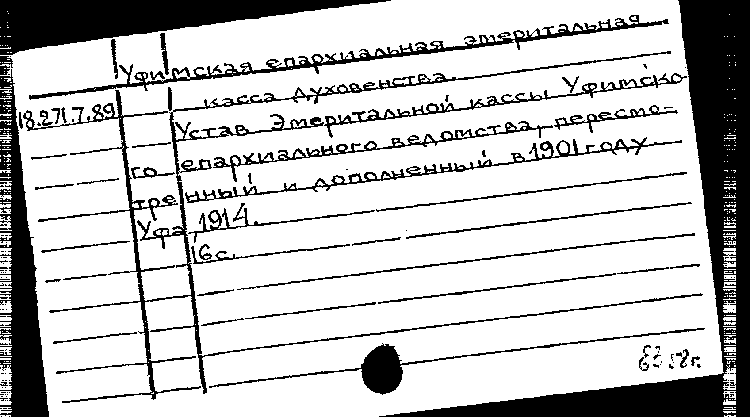 Уфимская епархиальная эмеритальная
касса духовенства.
18.271.7.89
Устав Эмеритальной кассы Уфимско-
го епархиального ведомства, пересмо-
тренный и дополненный в 1901 году
Уфа, 1914.
16 с.